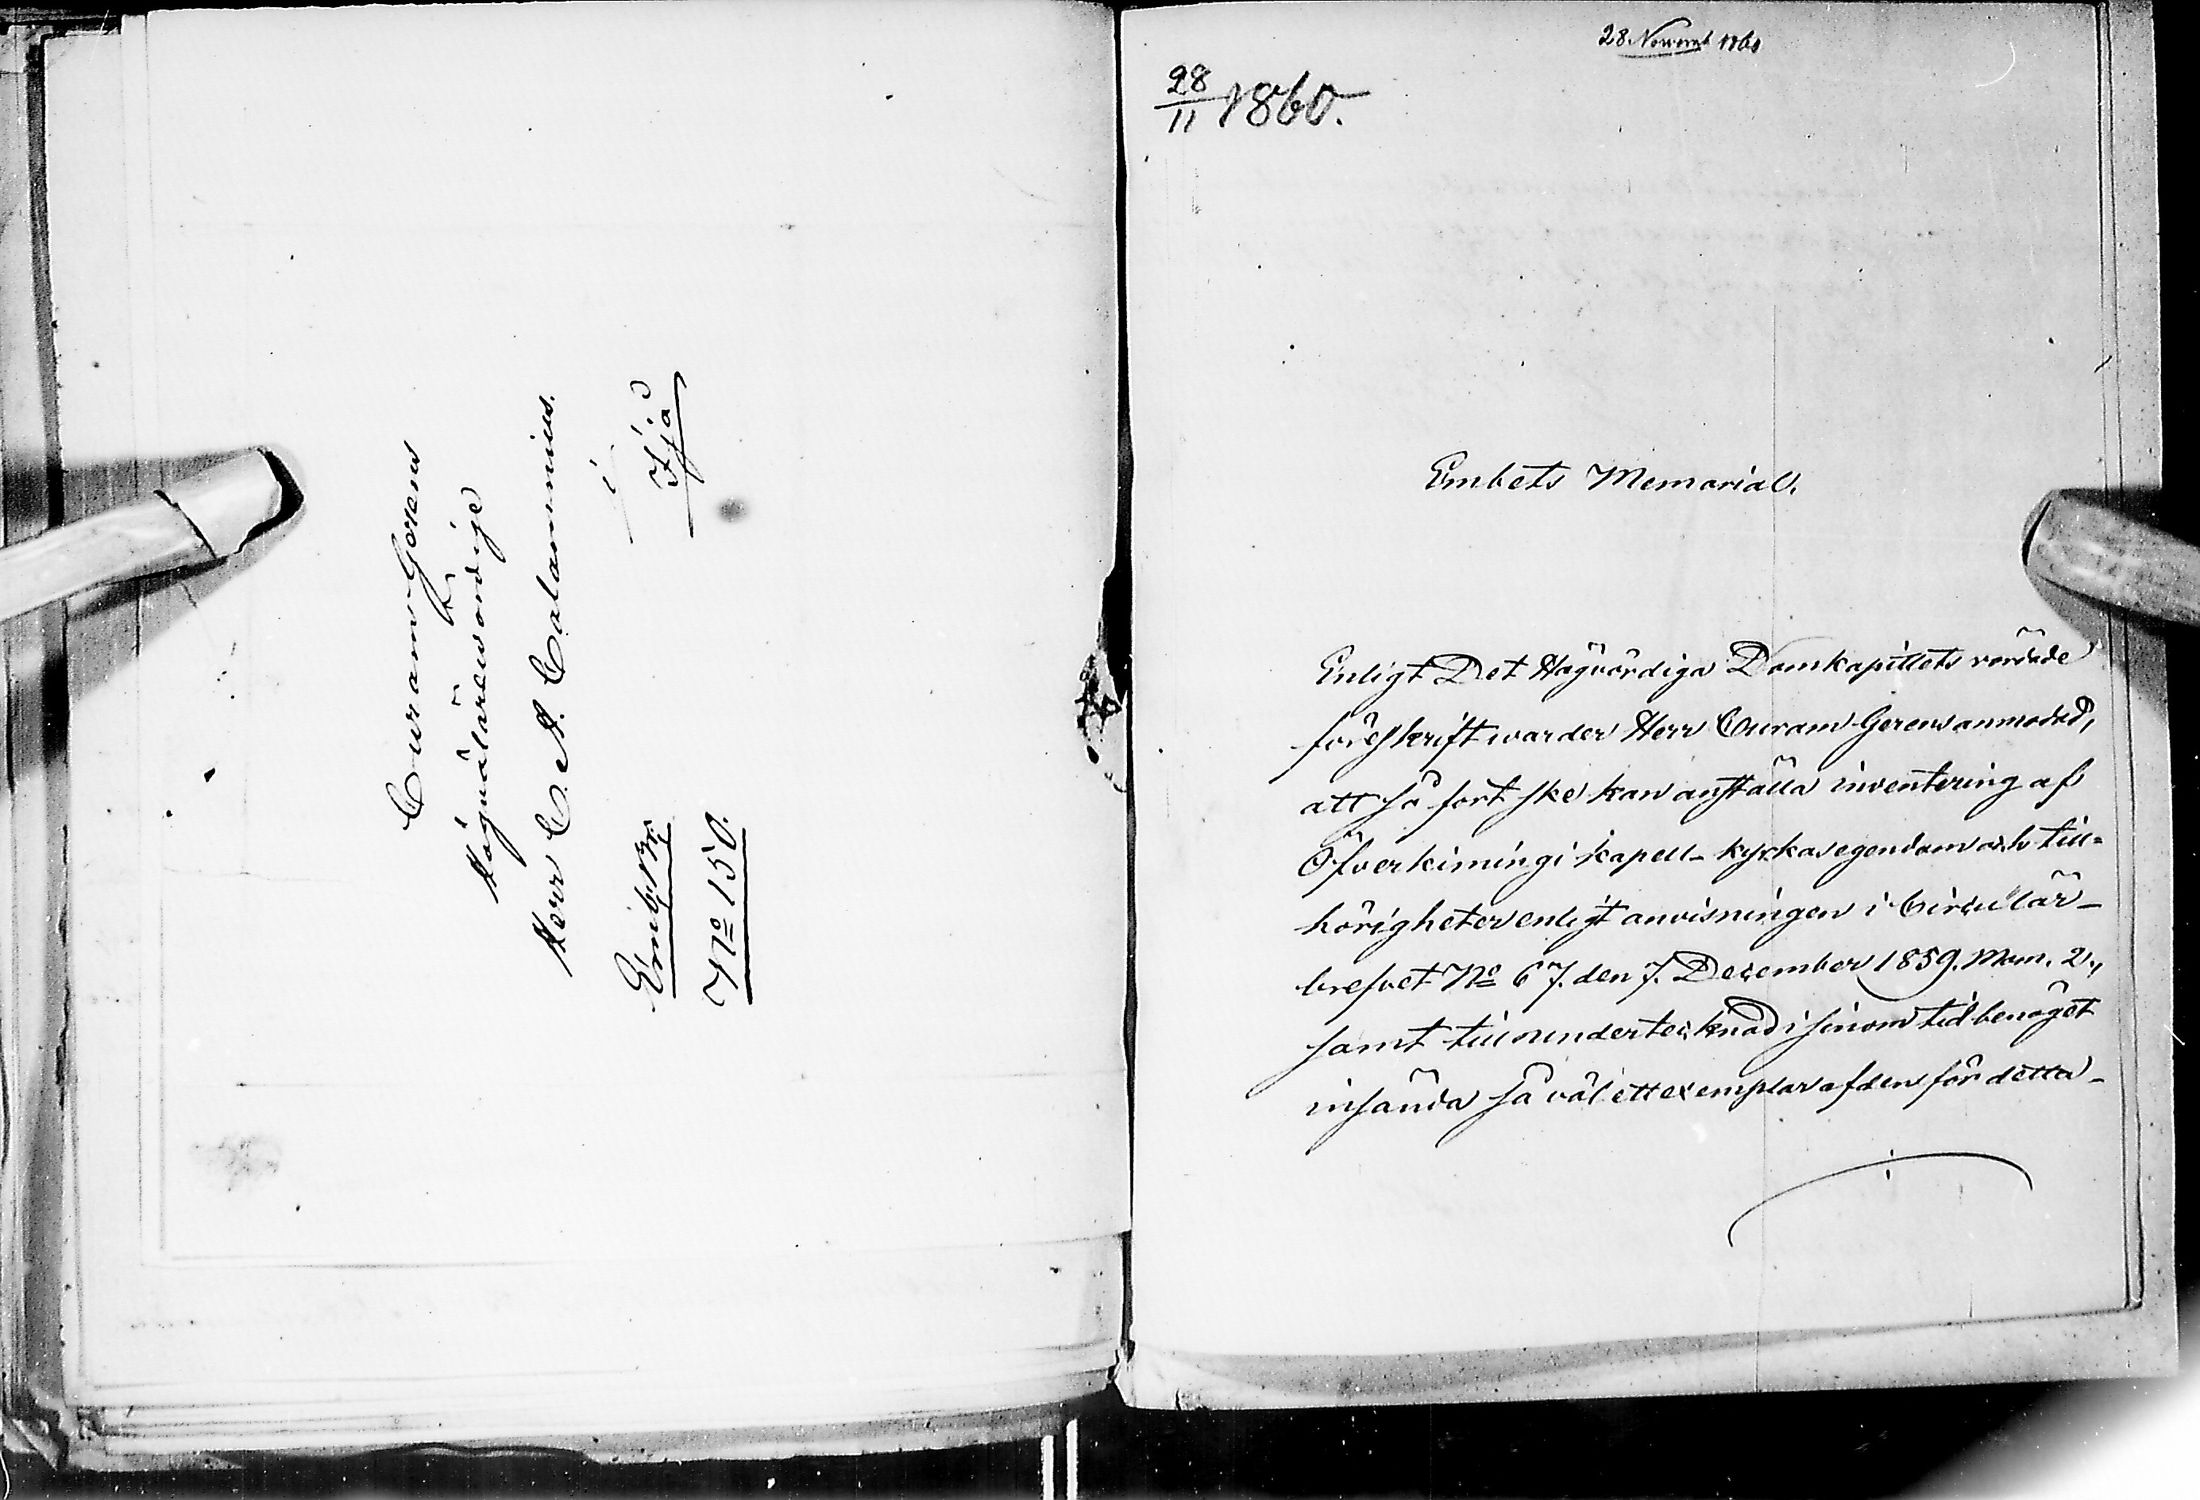 Curam Gerens
Högvällärevördige
Herr C. A. Calamnius.
i
Ijå
Embbref
No 150.
28 Novemb 1860
28/11 1860.
Embets Memorial.
Enligt Det Högvördiga Domkapitlets vördade
föreskrift warder Herr Curam Gerens anmodad,
att så fort ske kan anställa inventering af
Öfverkimingi kapell-kyrkas egendom och till=
hörigheter enligt anvisningen i Circulär-
brefvet No 67. den 7. December 1859. Mom. 2.,
samt till undertecknad i sinom tid benäget
insända så väl ett exemplar af den för detta-